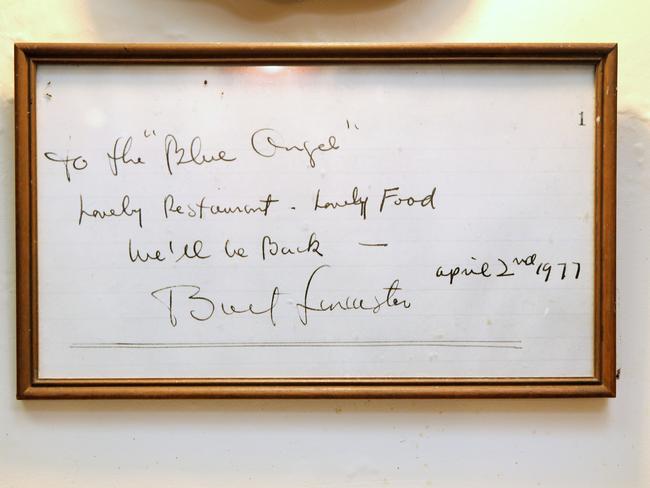 1
To the "Blue Angel"
Lovely Restaurant - Lovely Food
We'll be Back —
april 2nd 1977
Burt Lancaster